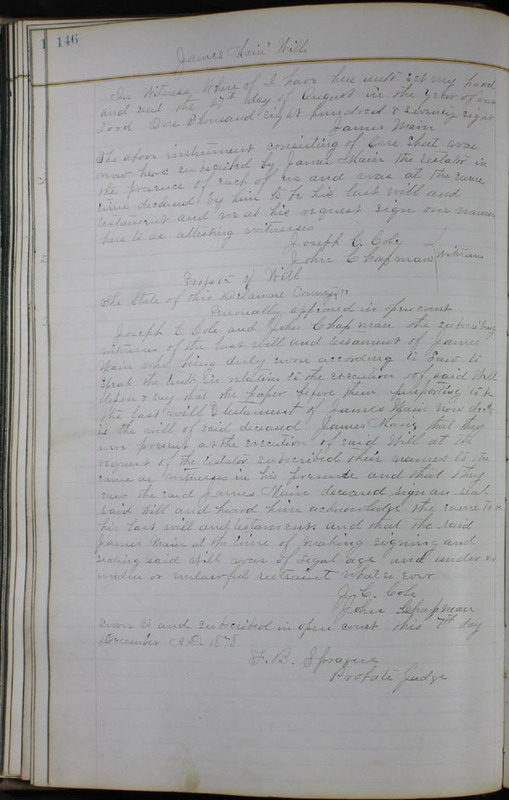 146
James Main' Will
In Witness Where of I have here unto set my hand
and seal the 27th day of August in the year of our
Lord One thousand eight hundred & seventy eight
James Main
The above instrument consisting of one sheet was
now here subscribed by James Main the testator in
the presence of each of us and was at the same
time declared by him to be his last will and
testament and we at his request sign our names
here to as attesting witnesses
Joseph C. Cole
John Chapman } Witnesses
Probate of Will
The State of Ohio Delaware County ss
Personally appeared in open court
Joseph C Cole and John Chapman the subscribing
witnesses of the last will and testament of James
Main who being duly sworn according to Law to
speak the truth in relation to the execution of said Will
depose & say that the paper before them purporting to be
the last will & testament of James Main now decd
is the will of said deceased James Main, that they
were present at the execution of said Will at the
request of the testator subscribed their names to the
same as witnesses in his presence and that they
saw the said James Main deceased sign and seal
said Will and heard him acknowledge the same to be
his last will and testament. and that the said
James Main at the time of making signing and
sealing said Will was of legal age and under no
undue or unlawful restraint what so ever
J. C. Cole
John Chapman
sworn to and subscribed in open court this 7th day
December A.D. 1878
F. B. Sprague
Probate Judge